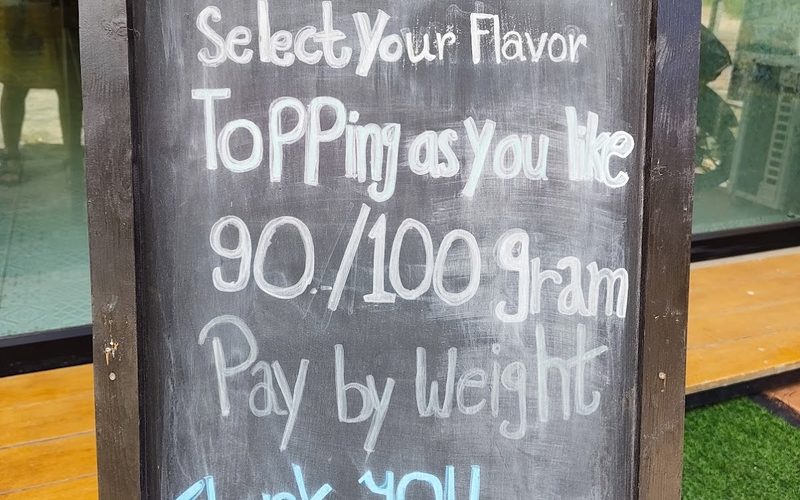 Select Your Flavor
Topping as you like
90.-/100 gram
Pay by Weight
Thank you